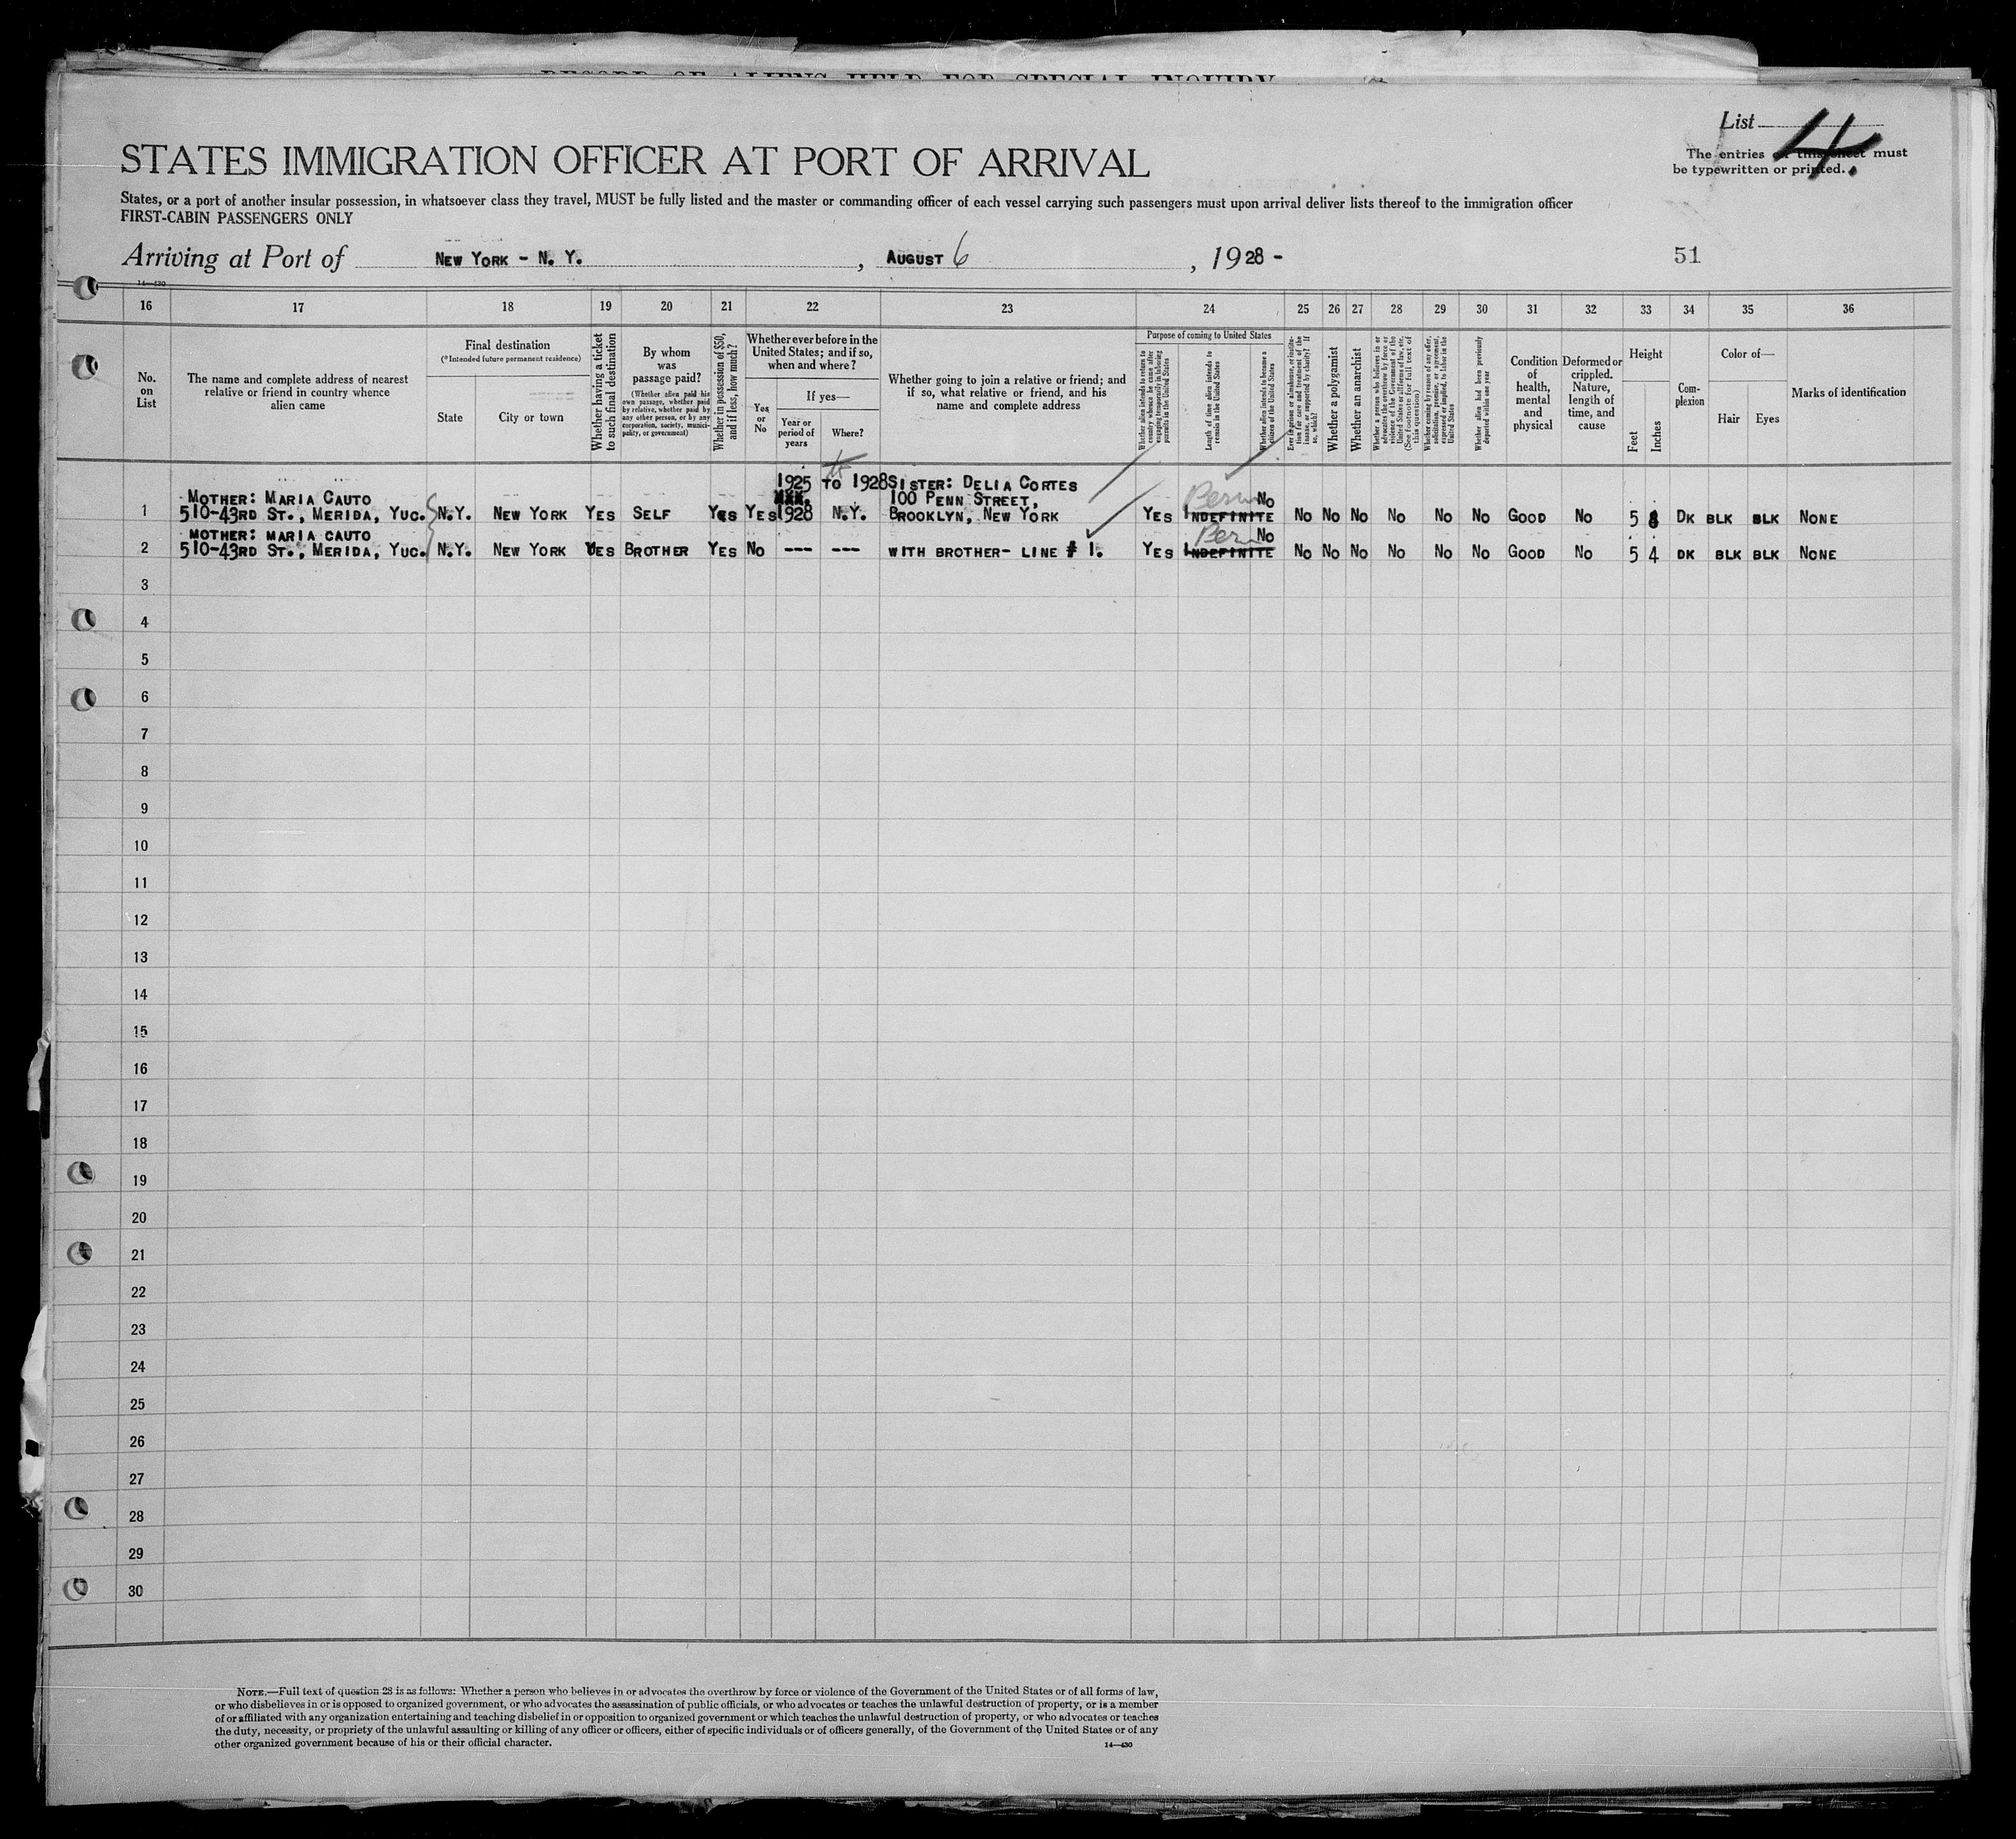 RECORD OF ALIENS HELD FOR SPECIAL INQUIRY
List 4.
The entries on this sheet must
be typewritten or printed.
STATES IMMIGRATION OFFICER AT PORT OF ARRIVAL
States, or a port of another insular possession, in whatsoever class they travel, MUST be fully listed and the master or commanding officer of each vessel carrying such passengers must upon arrival deliver lists thereof to the immigration officer
FIRST-CABIN PASSENGERS ONLY
Arriving at Port of NEW YORK - N. Y. , AUGUST 6 , 1928 -
51
14—430
16 17 18 19 20 21 22 23 24 25 26 27 28 29 30 31 32 33 34 35 36
No. on List
The name and complete address of nearest relative or friend in country whence alien came
Final destination
(*Intended future permanent residence)
State
City or town
Whether having a ticket to such final destination
By whom was passage paid?
(Whether alien paid his own passage, whether paid by relative, whether paid by any other person, or by any corporation, society, municipality, or government)
Whether in possession of $50, and if less, how much?
Whether ever before in the United States; and if so, when and where?
Yes or No
If yes—
Year or period of years
Where?
Whether going to join a relative or friend; and if so, what relative or friend, and his name and complete address
Purpose of coming to United States
Whether alien intends to return to country whence he came after engaging temporarily in laboring pursuits in the United States
Length of time alien intends to remain in the United States
Whether alien intends to become a citizen of the United States
Ever in prison or almshouse, or institution for care and treatment of the insane, or supported by charity? If so, which?
Whether a polygamist
Whether an anarchist
Whether a person who believes in or advocates the overthrow by force or violence of the Government of the United States or all forms of law, etc. (See footnote for full text of this question)
Whether coming by reason of any offer, solicitation, promise, or agreement, expressed or implied, to labor in the United States
Whether alien had been previously deported within one year
Condition of health, mental and physical
Deformed or crippled. Nature, length of time, and cause
Height
Feet
Inches
Com-plexion
Color of—
Hair
Eyes
Marks of identification
1925 TO 1928 SISTER: DELIA CORTES
MOTHER: MARIA CAUTO 100 PENN STREET, Perm NO
1 510-43RD ST., MERIDA, YUC. N.Y. NEW YORK YES SELF YES YES 1928 N.Y. BROOKLYN, NEW YORK YES INDEFINITE NO NO NO NO NO NO GOOD NO 5 8 DK BLK BLK NONE
MOTHER: MARIA CAUTO Perm NO
2 510-43RD ST., MERIDA, YUC. N.Y. NEW YORK YES BROTHER YES NO --- --- WITH BROTHER- LINE # 1. YES INDEFINITE NO NO NO NO NO NO GOOD NO 5 4 DK BLK BLK NONE
3
4
5
6
7
8
9
10
11
12
13
14
15
16
17
18
19
20
21
22
23
24
25
26
27
28
29
30
NOTE.—Full text of question 28 is as follows: Whether a person who believes in or advocates the overthrow by force or violence of the Government of the United States or of all forms of law,
or who disbelieves in or is opposed to organized government, or who advocates the assassination of public officials, or who advocates or teaches the unlawful destruction of property, or is a member
of or affiliated with any organization entertaining and teaching disbelief in or opposition to organized government or which teaches the unlawful destruction of property, or who advocates or teaches
the duty, necessity, or propriety of the unlawful assaulting or killing of any officer or officers, either of specific individuals or of officers generally, of the Government of the United States or of any
other organized government because of his or their official character.
14—430